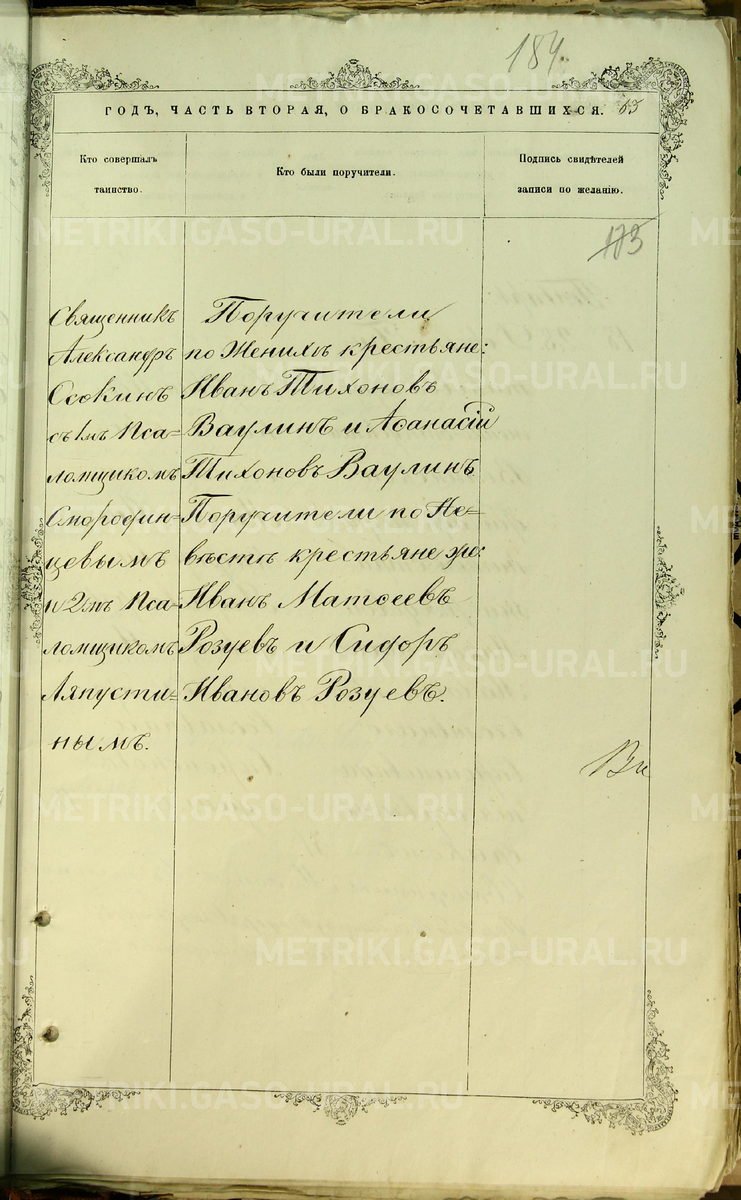 184.
ГОДЪ, ЧАСТЬ ВТОРАЯ, О БРАКОСОЧЕТАВШИХСЯ.
Кто совершалъ
таинство.
Кто были поручители.
Подпись свидѣтелей
записи по желанію.
113
Священникъ
Александръ
Осокинъ
съ 1мъ Пса-
ломщикомъ
Смородин-
цевымъ
и 2мъ Пса-
ломщикомъ
Ляпусти-
нымъ.
Поручители
по Женихѣ крестьяне:
Иванъ Тихоновъ
Ваулинъ и Аѳанасій
Тихоновъ Ваулинъ
Поручители по Не-
вѣстѣ крестьяне же:
Иванъ Матѳеевъ
Розуевъ и Сидоръ
Ивановъ Розуевъ.
METRIKI.GASO-URAL.RU